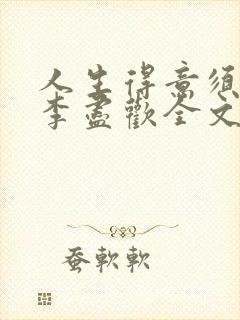 人生得意须
李尽歡全文
蚕軟軟